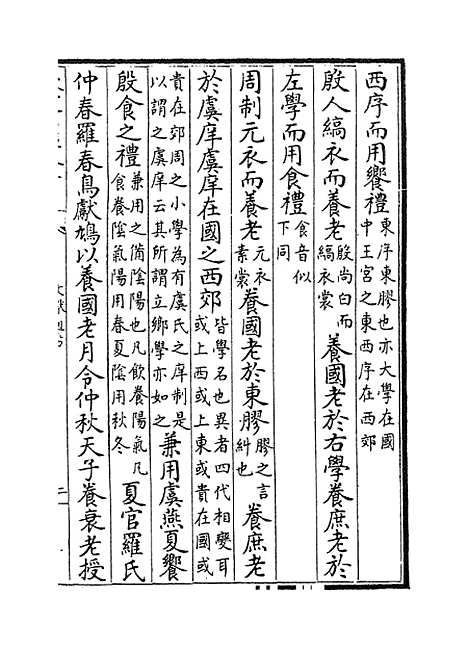 西序而用饗禮東序東膠也亦大學在國中王宮之東西序在西郊
殷人縞衣而養老殷尚白而縞衣裳養國老於右學養庶老於
左學而用食禮食音似下同
周制元衣而養老元衣素裳養國老於東膠膠之言糾也養庶老
於虞庠虞庠在國之西郊皆學名也異者四代相變耳或上西或上東或貴在國或
貴在郊周之小學為有虞氏之庠制是以謂之虞庠云其所謂立鄉學亦如之兼用虞燕夏饗
殷食之禮兼用之備陰陽也凡飲養陽氣凡食養陰氣陽用春夏陰用秋冬夏官羅氏
仲春羅春鳥獻鳩以養國老月令仲秋天子養衰老授